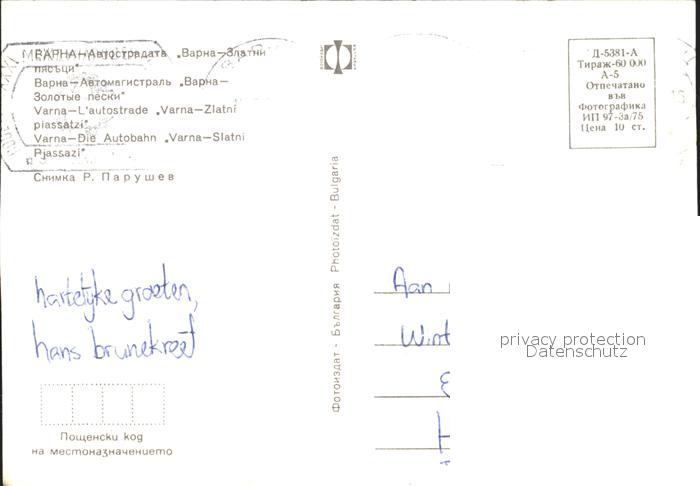 ВАРНА—Автострадата „Варна—Златни
пясъци“
Варна—Автомагистраль „Варна—
Золотые пески“
Varna—L'autostrade „Varna—Zlatni
piassatzi“
Varna—Die Autobahn „Varna—Slatni
Pjassazi“
Снимка Р. Парушев
Д-5381-А
Тираж-60 000
А-5
Отпечатано
във
Фотографика
ИП 97-За/75
Цена 10 ст.
Фотоиздат - България Photoizdat - Bulgaria
hartelijke groeten,
hans
Aan
Wint
privacy protection
Datenschutz
Пощенски код
на местоназначението